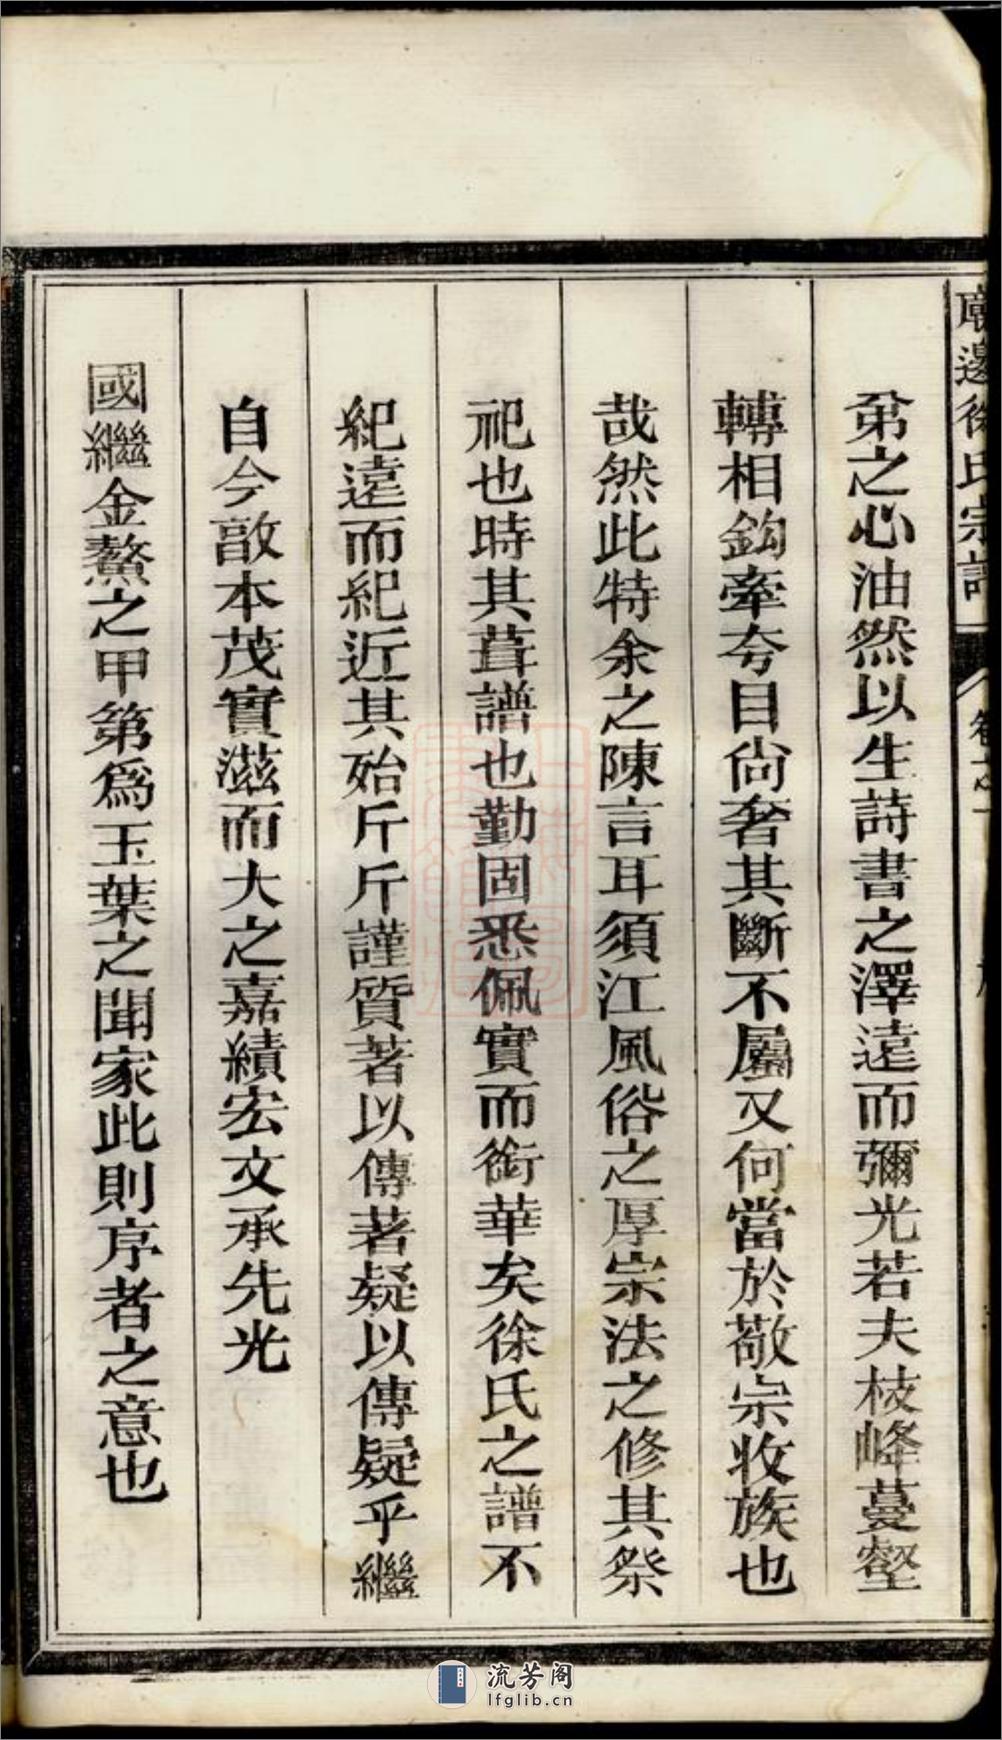 廟邊徐氏宗譜 卷之一 序
弟之心油然以生詩書之澤遠而彌光若夫枝峰蔓壑
轉相鈎牽夸目尙奢其斷不屬又何當於敬宗收族也
哉然此特余之陳言耳須江風俗之厚宗法之修其祭
祀也時其葺譜也勤固悉佩實而銜華矣徐氏之譜不
紀遠而紀近其始斤斤謹質著以傳著疑以傳疑乎繼
自今敦本茂實滋而大之嘉績宏文承先光
國繼金鰲之甲第為玉葉之聞家此則序者之意也
流芳阁
lfglib.cn